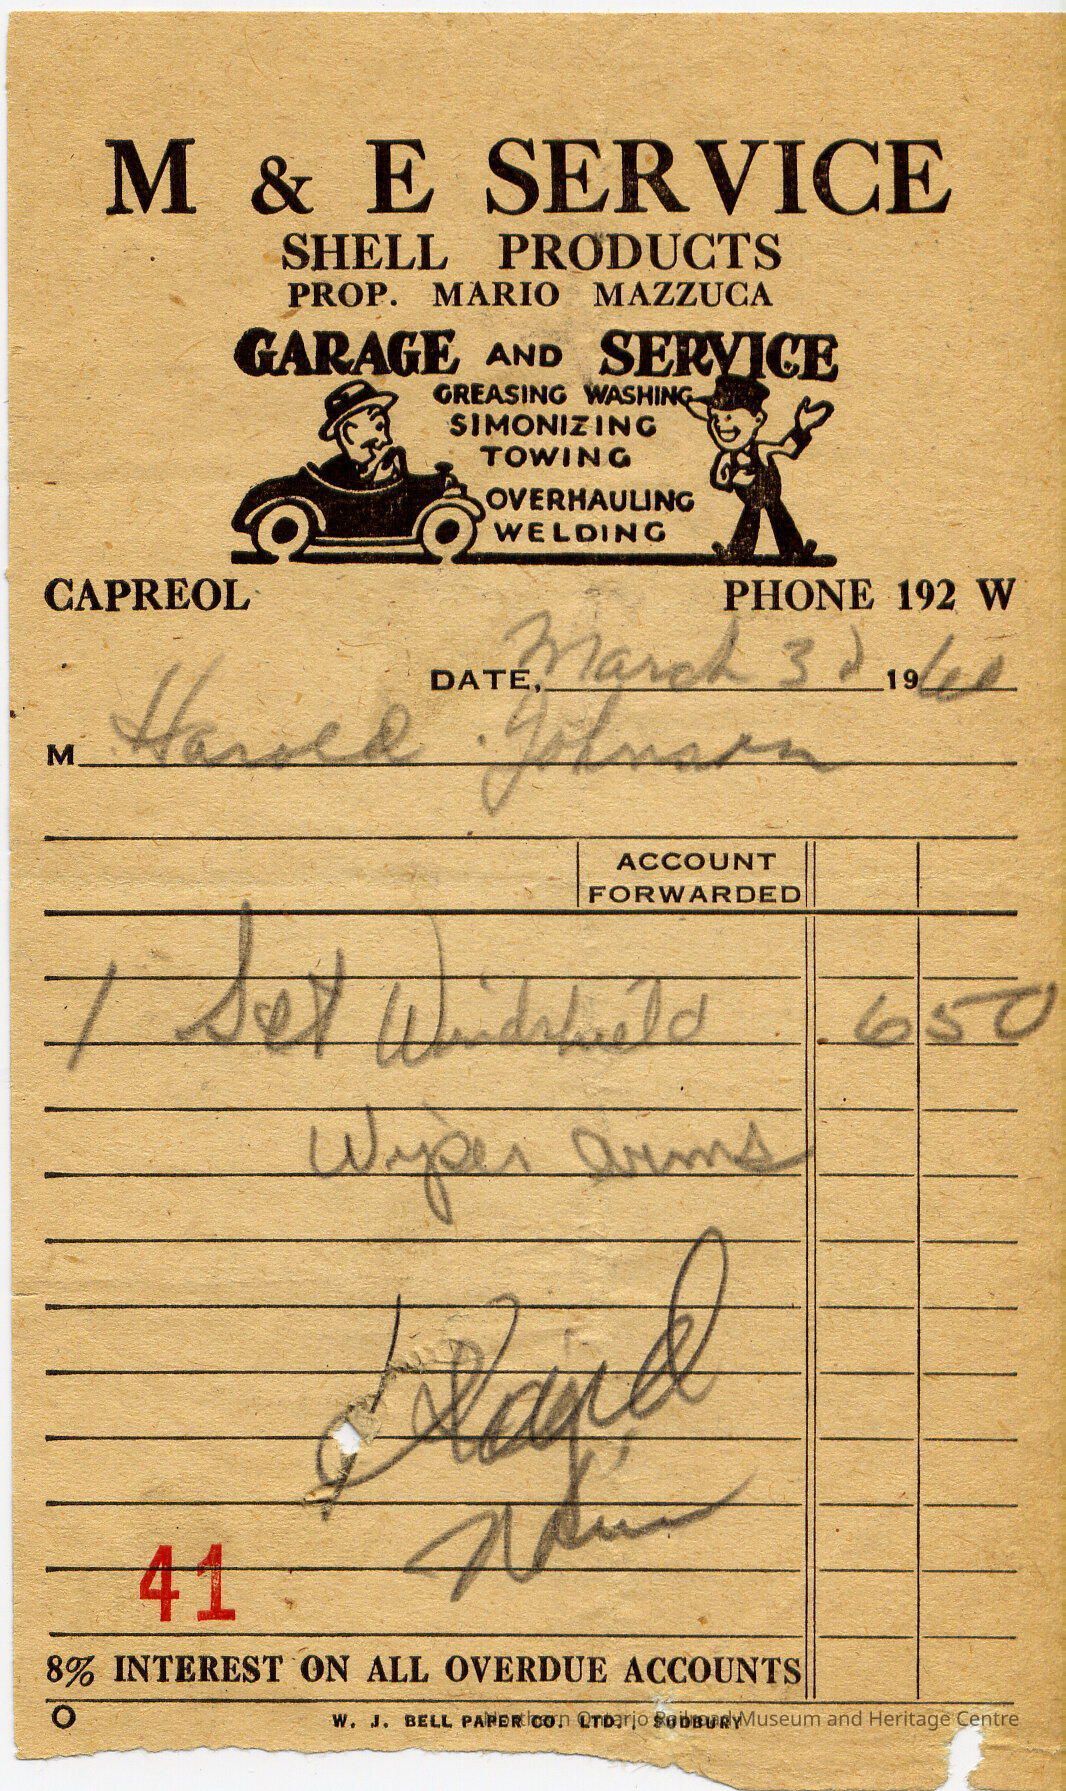 M & E SERVICE
SHELL PRODUCTS
PROP. MARIO MAZZUCA
GARAGE AND SERVICE
GREASING WASHING
SIMONIZING
TOWING
OVERHAULING
WELDING
CAPREOL PHONE 192 W
DATE, March 3d 1960
M Harold Johnson
ACCOUNT
FORWARDED
1 Set Windshield 6 50
Wiper arms
Paid
41
8% INTEREST ON ALL OVERDUE ACCOUNTS
W. J. BELL PAPER CO. LTD., SUDBURY
Northern Ontario Railroad Museum and Heritage Centre